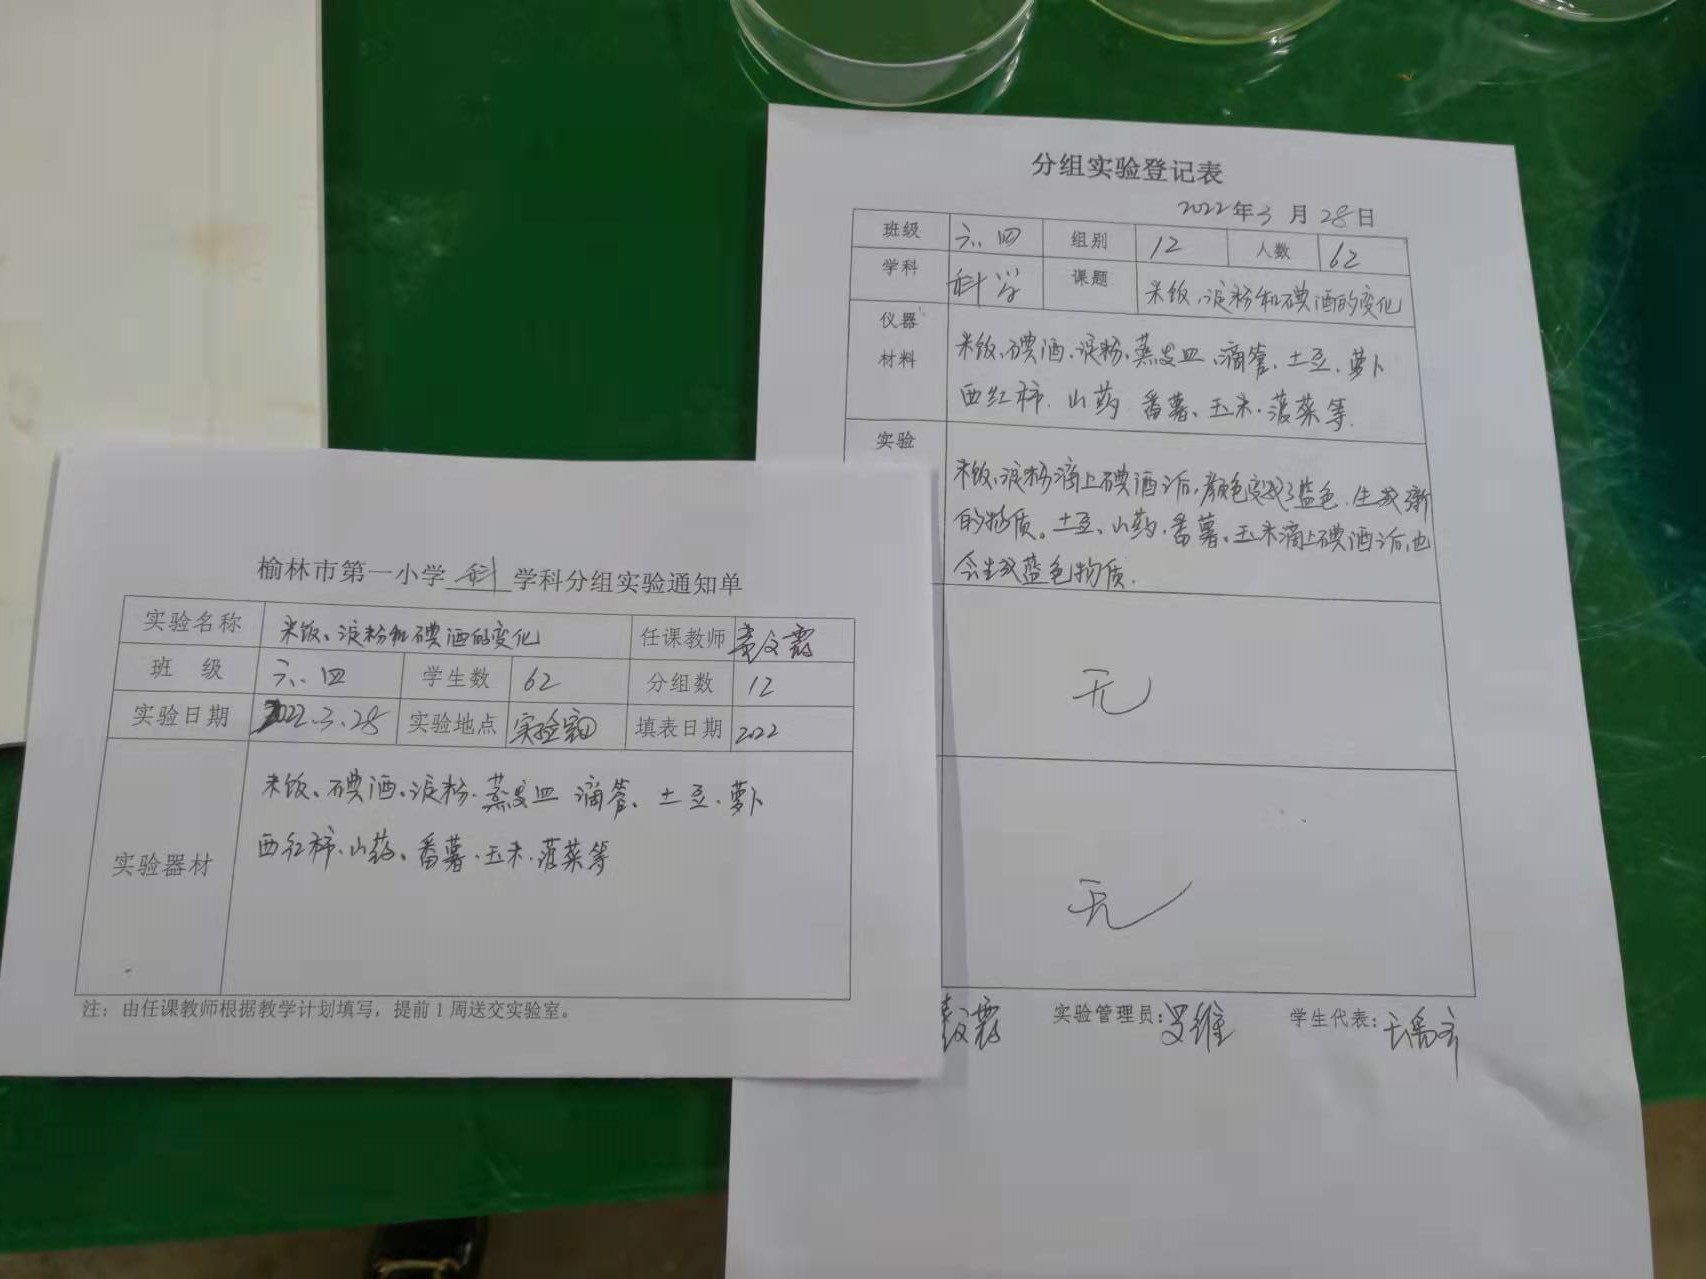 分组实验登记表
2022年3月28日
班级 六.四 组别 12 人数 62
学科 科学 课题 米饭、淀粉和碘酒的变化
仪器
材料
米饭、碘酒、淀粉、蒸发皿、滴管、土豆、萝卜
西红柿、山药、番薯、玉米、菠菜等.
实验
米饭、淀粉滴上碘酒后,颜色变成了蓝色.生成新
的物质。土豆、山药、番薯、玉米滴上碘酒后,也
会生成蓝色物质.
无
无
实验管理员: 学生代表:
榆林市第一小学 科 学科分组实验通知单
实验名称 米饭、淀粉和碘酒的变化 任课教师
班 级 六.四 学生数 62 分组数 12
实验日期 2022.3.28 实验地点 实验室 填表日期 2022
实验器材
米饭、碘酒、淀粉、蒸发皿 滴管、土豆、萝卜
西红柿、山药、番薯、玉米、菠菜等
注：由任课教师根据教学计划填写，提前1周送交实验室。